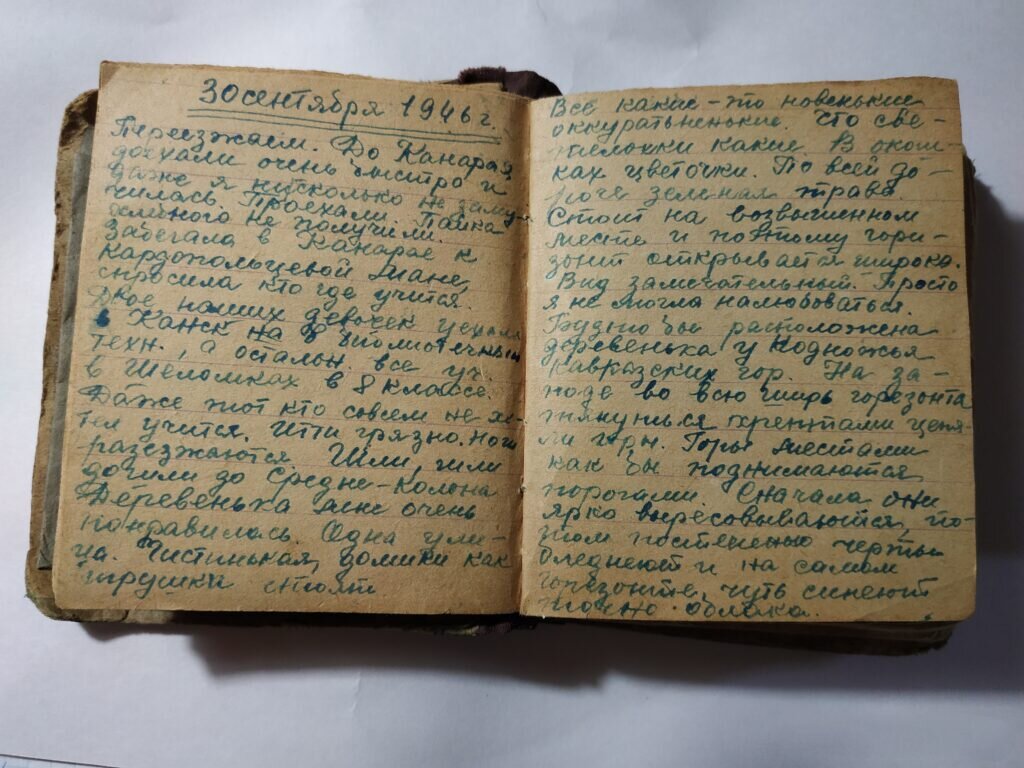 30 сентября 1946 г.
Переезжаем. До Канарая
доехали очень быстро и
даже я нисколько не заму-
чилась. Проехали. Пайка
хлебного не получили.
Забегала в Канарае к
Кардопольцевой Мане,
спросила кто где учится.
Двое наших девочек уехали
в Канск на библиотечный
техн., а остальн. все уч.
в Шеломках в 8 классе.
Даже тот кто совсем не хо-
тел учится. Итти грязно. Ноги
разъезжаются Шли, шли
дошли до Средне-Колона
Деревенька мне очень
понравилась. Одна ули-
ца. Чистинькая, домики как
игрушки стоят
Все какие-то новенькие
оккуратьненькие. Что све-
тёлочки какие В окош-
ках цветочки. По всей до-
роге зеленая трава.
Стоит на возвышенном
месте и поэтому гори-
зонт открывается широко.
Вид замечательный. Просто
я не могла налюбоваться.
Будто бы расположена
деревенька у подножья
Кавказских гор. На за-
поде во всю ширь горезонта
тянуться хрептами цепя-
ли горы. Горы местами
как бы поднимаются
порогами. Сначала они
ярко выресовываются, по-
том постепенно черты
бледнеют и на самом
горизонте, чуть синеют
точно облака.